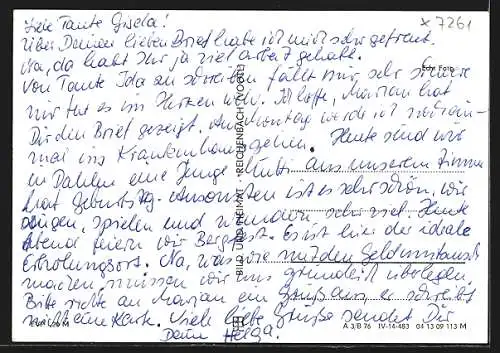 Liebe Tante Gisela!
Über Deinen lieben Brief habe ich mich sehr gefreut.
Na, da habt Ihr ja viel Arbeit gehabt.
Von Tante Ida zu schreiben fällt mir sehr schwer
mir tut es im Herzen weh. Ich hoffe, Marian hat
Dir den Brief gezeigt. Am Montag werde ich
mal ins Krankenhaus gehen. Heute sind wir
in Dahlen eine Junge aus unserem Zimmer
hat Geburtstag. Ansonsten ist es sehr schön, wir
singen, spielen und wandern sehr viel. Heute
Abend feiern wir Bergfest. Es ist hier der ideale
Erholungsort. Na, was wir mit den Geldumtausch
machen, müssen wir uns gründlich überlegen.
Bitte richte an Marian ein Gruß aus, er schreibt
mich eine Karte. Viele liebe Grüße sendet Dir
Deine Helga.
x 7261
Echt Foto
BILD UND HEIMAT · REICHENBACH (VOGTL)
A 3/B 76 IV-14-483 04 13 09 113 M